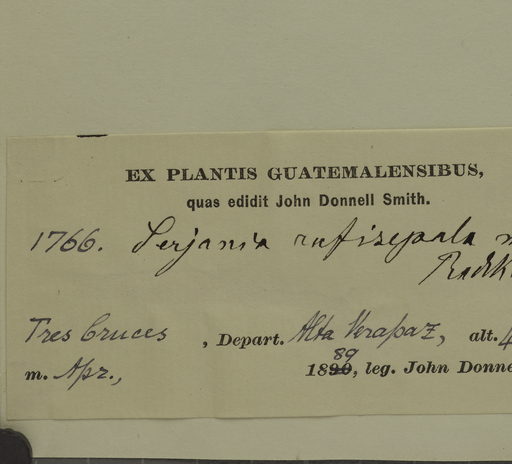 EX PLANTIS GUATEMALENSIBUS,
quas edidit John Donnell Smith.
1766. Serjania rufisepala
Radlk
Tres Cruces , Depart. Alta Verapaz, alt. 4
89
m. Apr., 1890, leg. John Donne